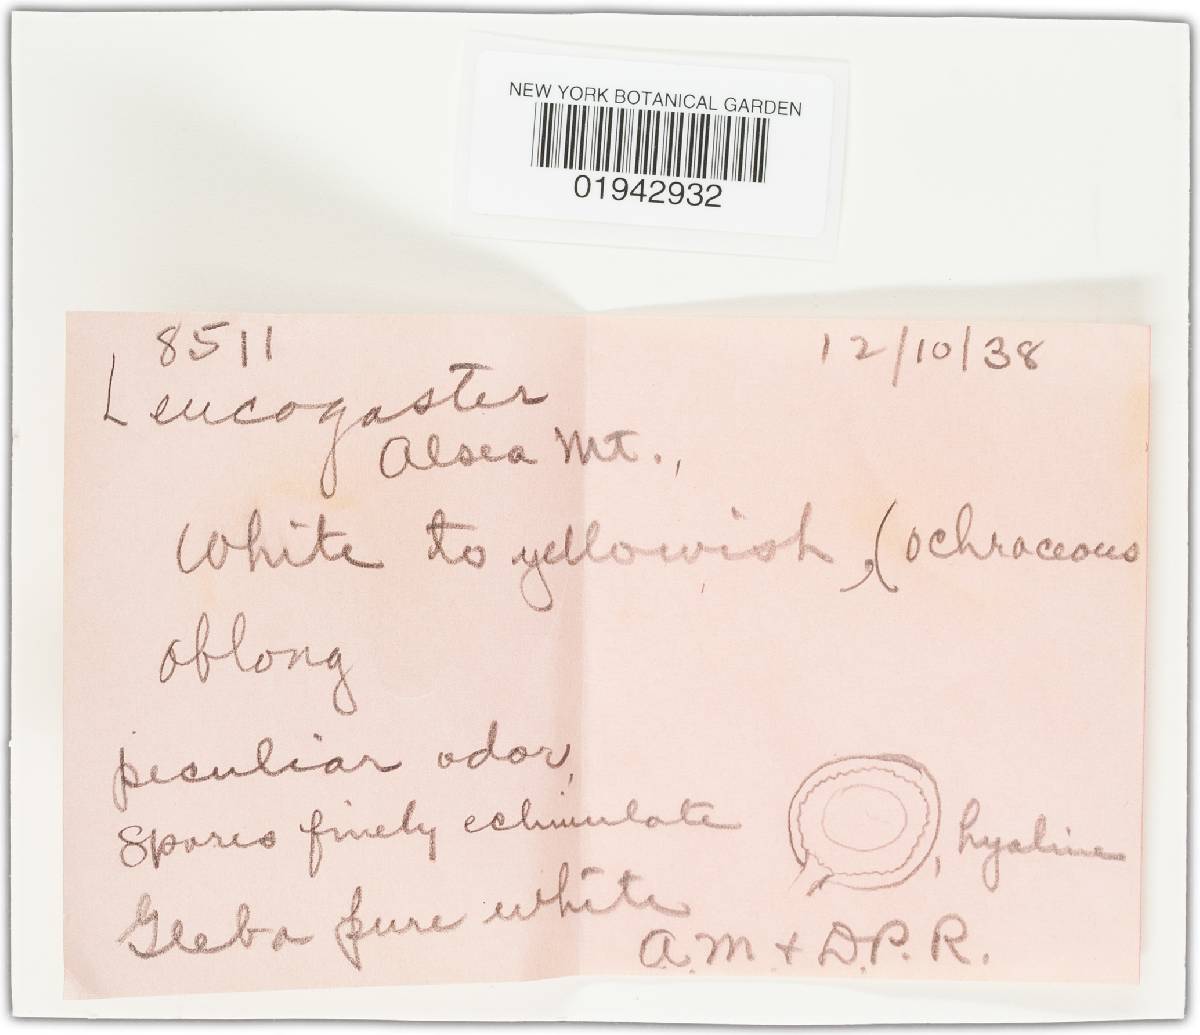 NEW YORK BOTANICAL GARDEN
01942932
8511 12/10/38
Leucogaster
Alsea Mt.,
White to yellowish, (ochraceous
oblong
peculiar odor,
Spores finely echinulate , hyaline
Gleba pure white
A.M. + D.P.R.